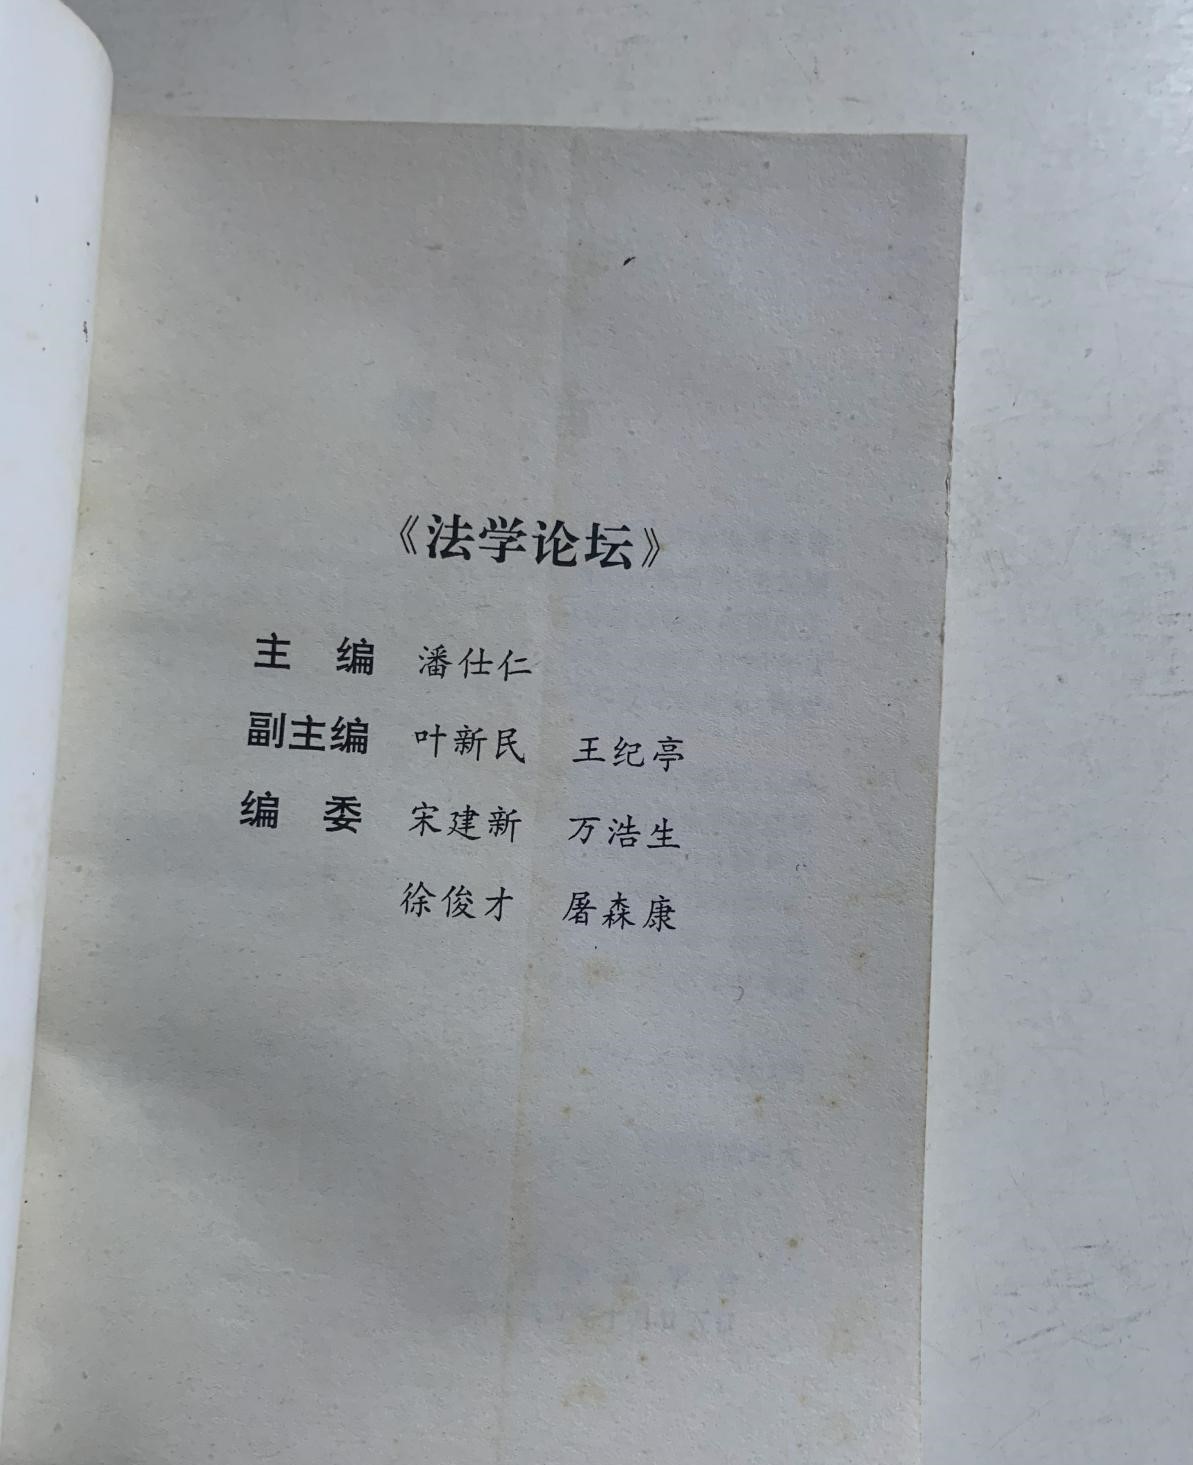 《法学论坛》
主　编　潘仕仁
副主编　叶新民　王纪亭
编　委　宋建新　万浩生
徐俊才　屠森康